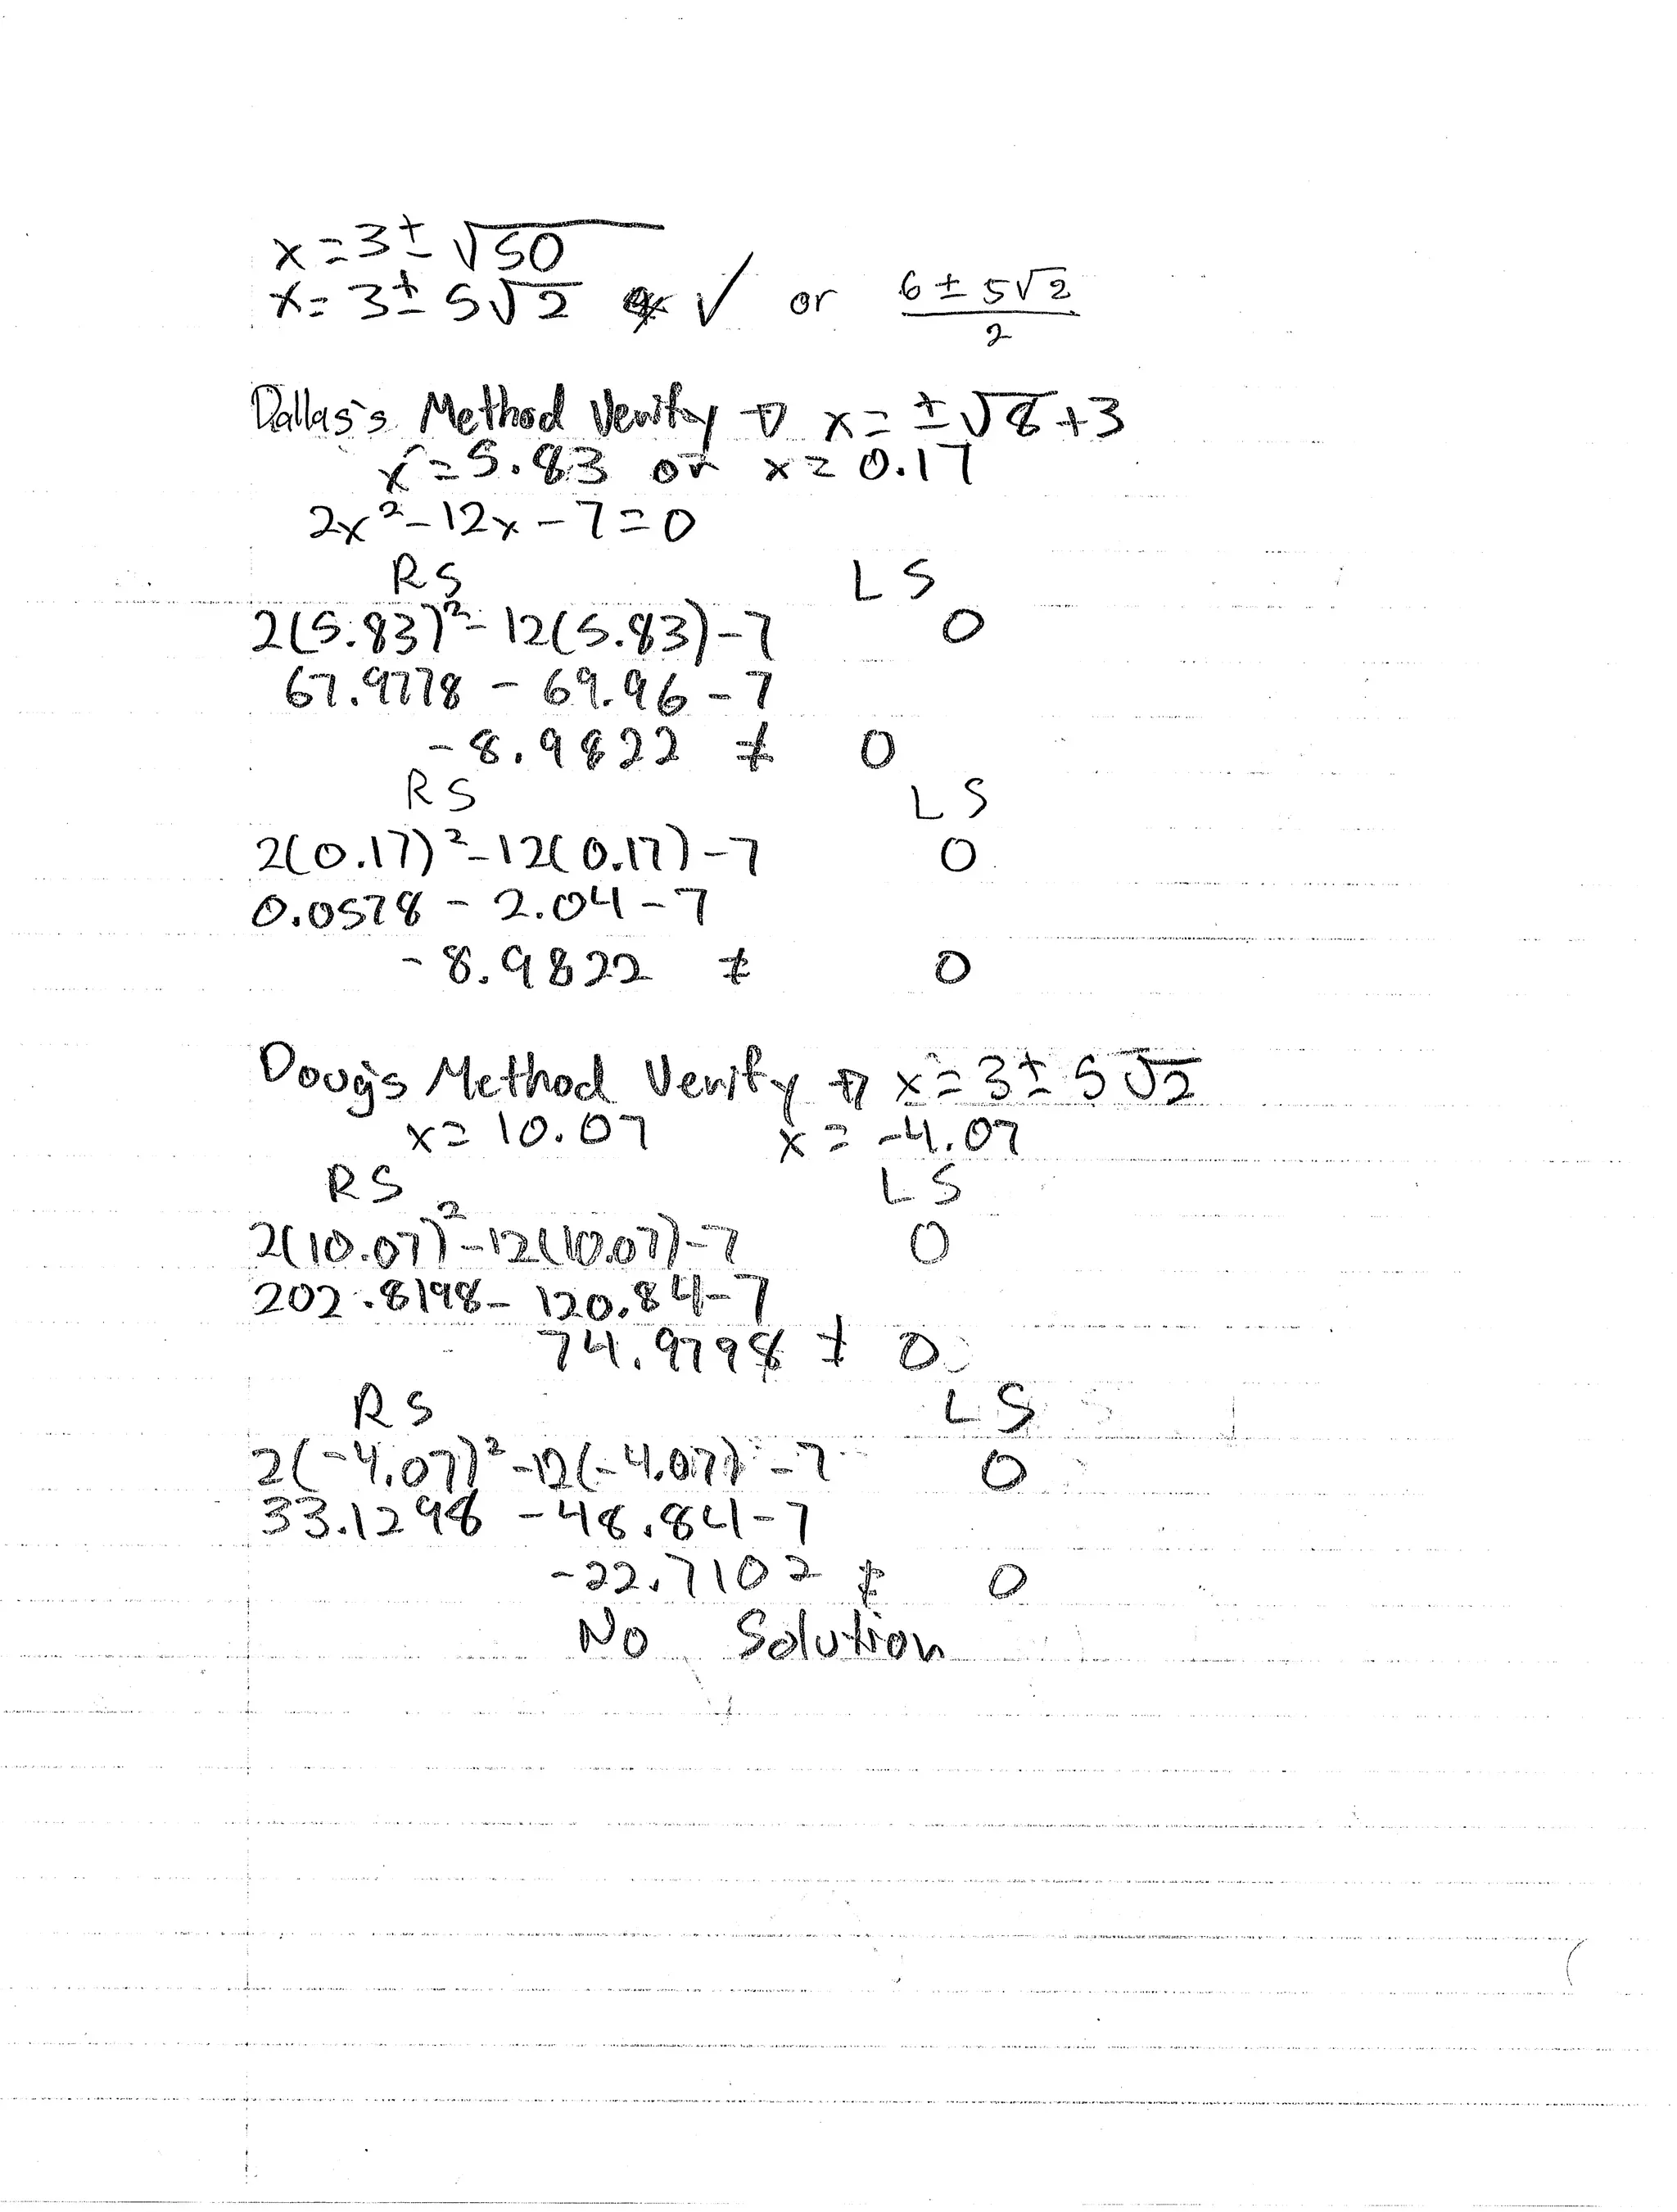 x = 3 ± √50
x = 3 ± 5√2 ✓ or (6 ± 5√2)/2
Dallas's Method Verify → x = ± √8 + 3
x = 5.83 or x = 0.17
2x² - 12x - 7 = 0
RS LS
2(5.83)² - 12(5.83) - 7 0
67.9778 - 69.96 - 7
-8.9822 ≠ 0
RS LS
2(0.17)² - 12(0.17) - 7 0
0.0578 - 2.04 - 7
-8.9822 ≠ 0
Doug's Method Verify → x = 3 ± 5√2
x = 10.07 x = -4.07
RS LS
2(10.07)² - 12(10.07) - 7 0
202.8198 - 120.84 - 7
74.9798 ≠ 0
RS LS
2(-4.07)² - 12(-4.07) - 7 0
33.1298 - 48.84 - 7
-22.7102 ≠ 0
No Solution